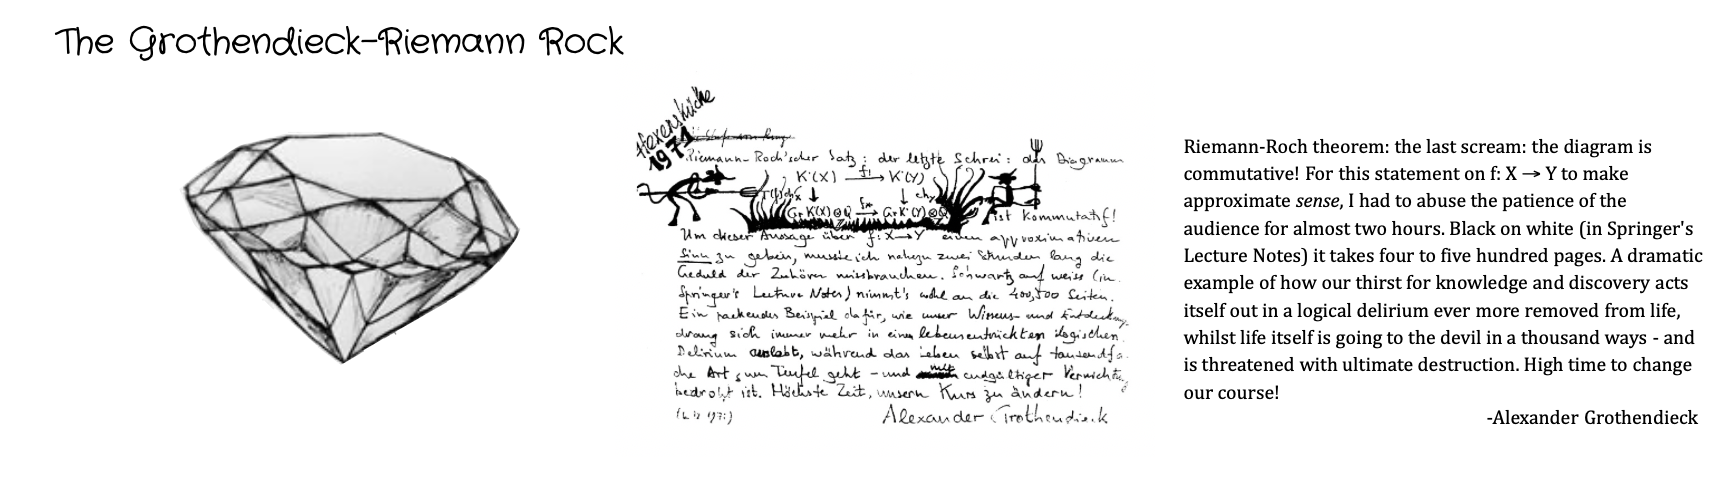 The Grothendieck-Riemann Rock
Hexenküche
1971
Riemann-Roch'scher Satz: der letzte Schrei: das Diagramm
K·(X) f! → K·(Y)
↓ ↓
Gr K·(X)⊗Q f* → Gr K·(Y)⊗Q
ist kommutatif!
Um dieser Aussage über f: X → Y einen approximativen
Sinn zu geben, musste ich nahezu zwei Stunden lang die
Geduld der Zuhörer missbrauchen. Schwartz auf weiss (in
Springer's Lecture Notes) nimmt's wohl an die 400, 500 Seiten.
Ein packendes Beispiel dafür, wie unser Wissens- und Entdeckungs
drang sich immer mehr in einem lebensentrückten logischen
Delirium auslebt, während das Leben selbst auf tausendfa-
che Art zum Teufel geht - und mit endgültiger Vernichtung
bedroht ist. Höchste Zeit, unsern Kurs zu ändern!
Alexander Grothendieck
Riemann-Roch theorem: the last scream: the diagram is
commutative! For this statement on f: X → Y to make
approximate sense, I had to abuse the patience of the
audience for almost two hours. Black on white (in Springer's
Lecture Notes) it takes four to five hundred pages. A dramatic
example of how our thirst for knowledge and discovery acts
itself out in a logical delirium ever more removed from life,
whilst life itself is going to the devil in a thousand ways - and
is threatened with ultimate destruction. High time to change
our course!
-Alexander Grothendieck